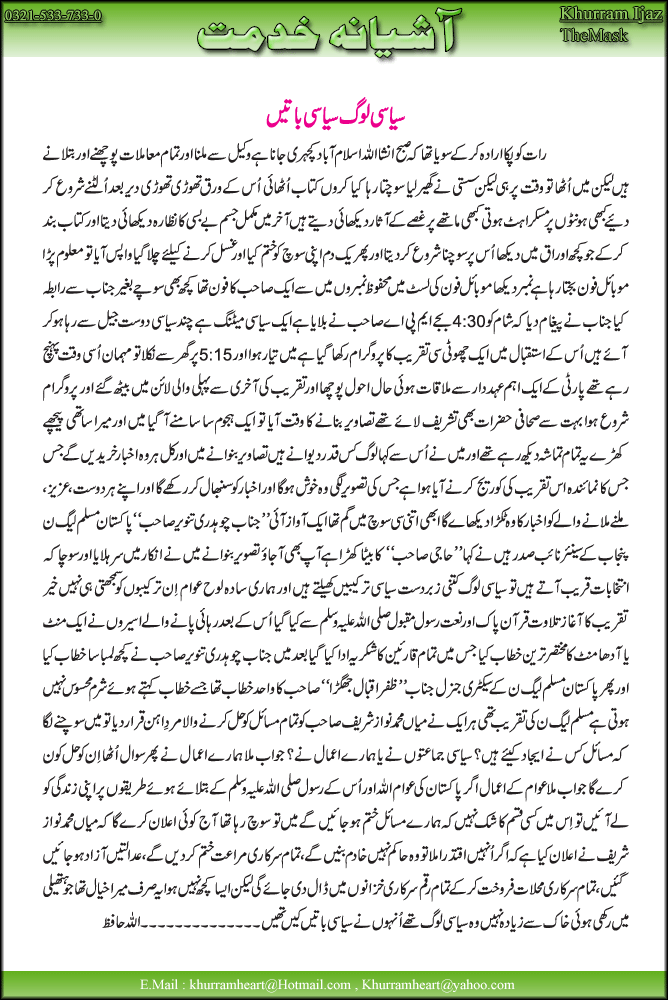 0321-533-733-0
آشیانہ خدمت
Khurram Ijaz
TheMask
سیاسی لوگ سیاسی باتیں
رات کو پکا ارادہ کر کے سویا تھا کہ صبح انشا اللہ اسلام آباد کچہری جانا ہے وکیل سے ملنا اور تمام معاملات پوچھنے اور بتلانے
ہیں لیکن میں اُٹھا تو وقت پر ہی لیکن سستی نے گھیر لیا سوچتا رہا کیا کروں کتاب اُٹھائی اُس کے ورق تھوڑی تھوڑی دیر بعد اُلٹنے شروع کر
دئیے کبھی ہونٹوں پر مسکراہٹ ہوتی کبھی ماتھے پر غصے کے آثار دیکھائی دیتے ہیں آخر میں مکمل جسم بے بسی کا نظارہ دیکھائی دیتا اور کتاب بند
کر کے جو کچھ اوراق میں دیکھا اُس پر سوچنا شروع کر دیتا اور پھر یک دم اپنی سوچ کو ختم کیا اور غسل کرنے کیلئے چلا گیا واپس آیا تو معلوم پڑا
موبائل فون بجتا رہا ہے نمبر دیکھا موبائل فون کی لسٹ میں محفوظ نمبروں میں سے ایک صاحب کا فون تھا کچھ بھی سوچے بغیر جناب سے رابطہ
کیا جناب نے پیغام دیا کہ شام کو 4:30 بجے ایم پی اے صاحب نے بلایا ہے ایک سیاسی میٹنگ ہے چند سیاسی دوست جیل سے رہا ہو کر
آئے ہیں اُس کے استقبال میں ایک چھوٹی سی تقریب کا پروگرام رکھا گیا ہے میں تیار ہوا اور 5:15 پر گھر سے نکلا تو مہمان اُسی وقت پہنچ
رہے تھے پارٹی کے ایک اہم عہددار سے ملاقات ہوئی حال احول پوچھا اور تقریب کی آخری سے پہلی والی لائن میں بیٹھ گئے اور پروگرام
شروع ہوا بہت سے صحافی حضرات بھی تشریف لائے تھے تصاویر بنانے کا وقت آیا تو ایک ہجوم سا سامنے آ گیا میں اور میرا ساتھی پیچھے
کھڑے یہ تمام تماشہ دیکھ رہے تھے اور میں نے اُس سے کہا لوگ کس قدر دیوانے ہیں تصاویر بنوانے میں اور کل ہر وہ اخبار خریدیں گے جس
جس کا نمائندہ اس تقریب کی کوریج کرنے آیا ہوا ہے جس کی تصویر لگی وہ خوش ہو گا اور اخبار کو سنبھال کر رکھے گا اور اپنے ہر دوست، عزیز،
ملنے ملانے والے کو اخبار کا وہ ٹکڑا دیکھائے گا ابھی اتنی سی سوچ میں گم تھا ایک آواز آئی ’’جناب چوہدری تنویر صاحب‘‘ پاکستان مسلم لیگ ن
پنجاب کے سینئر نائب صدر ہیں نے کہا ’’حاجی صاحب‘‘ کا بیٹا کھڑا ہے آپ بھی آ جاؤ تصویر بنوانے میں نے انکار میں سر ہلایا اور سوچا کہ
انتخابات قریب آتے ہیں تو سیاسی لوگ کتنی زبردست سیاسی ترکیبیں کھیلتے ہیں اور ہماری سادہ لوح عوام اِن ترکیبوں کو سمجھتی ہی نہیں خیر
تقریب کا آغاز تلاوت قرآن پاک اور نعت رسول مقبول صلی اللہ علیہ وسلم سے کیا گیا اُس کے بعد رہائی پانے والے اسیروں نے ایک منٹ
یا آدھا منٹ کا مختصر ترین خطاب کیا جس میں تمام قارئین کا شکریہ ادا کیا گیا بعد میں جناب چوہدری تنویر صاحب نے کچھ لمبا سا خطاب کیا
اور پھر پاکستان مسلم لیگ ن کے سیکٹری جنرل جناب ’’ظفر اقبال جھگڑا‘‘ صاحب کا واحد خطاب تھا جسے خطاب کہتے ہوئے شرم محسوس نہیں
ہوتی ہے مسلم لیگ ن کی تقریب تھی ہر ایک نے میاں محمد نواز شریف صاحب کو تمام مسائل کو حل کرنے والا مردِ اہن قرار دیا تو میں سوچنے لگا
کہ مسائل کس نے ایجاد کیئے ہیں؟ سیاسی جماعتوں نے یا ہمارے اعمال نے؟ جواب ملا ہمارے اعمال نے پھر سوال اُٹھا اِن کو حل کون
کرے گا جواب ملا عوام کے اعمال اگر پاکستان کی عوام اللہ اور اُس کے رسول صلی اللہ علیہ وسلم کے بتلائے ہوئے طریقوں پر اپنی زندگی کو
لے آئیں تو اِس میں کسی قسم کا شک نہیں کہ ہمارے مسائل ختم ہو جائیں گے میں تو سوچ رہا تھا آج کوئی اعلان کرے گا کہ میاں محمد نواز
شریف نے اعلان کیا ہے کہ اگر اُنہیں اقتدرا ملا تو وہ حاکم نہیں خادم بنیں گے، تمام سرکاری مراعت ختم کر دیں گے، عدالتیں آزاد ہو جائیں
گئیں، تمام سرکاری محلات فروخت کر کے تمام رقم سرکاری خزانوں میں ڈال دی جائے گی لیکن ایسا کچھ نہیں ہوا یہ صرف میرا خیال تھا جو ہتھیلی
میں رکھی ہوئی خاک سے زیادہ نہیں وہ سیاسی لوگ تھے اُنہوں نے سیاسی باتیں کیں تھیں ۔۔۔۔۔۔۔۔۔۔۔۔۔۔ اللہ حافظ
E.Mail : khurramheart@Hotmail.com , Khurramheart@yahoo.com